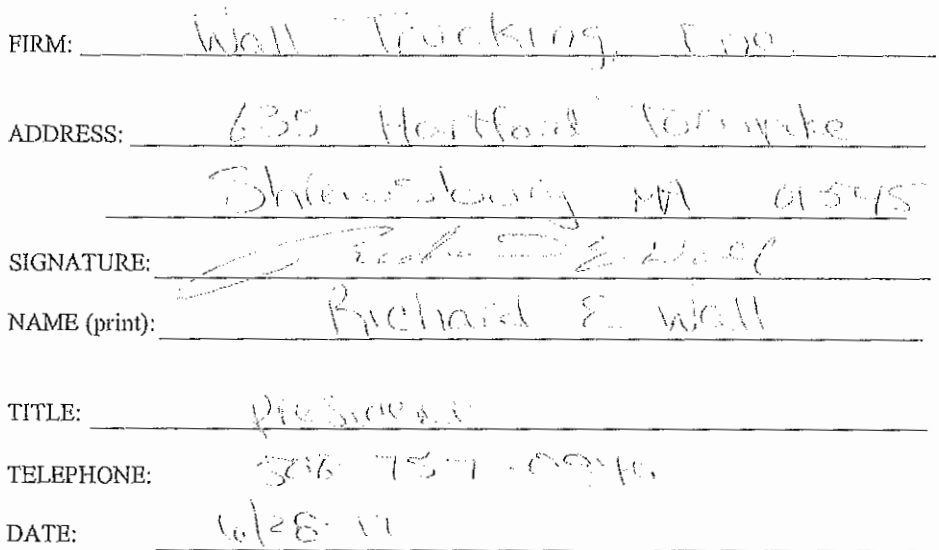 FIRM: Wall Trucking, Inc.
ADDRESS: 635 Hartford Turnpike
Shrewsbury MA 01545
SIGNATURE: Richard E. Wall
NAME (print): Richard E. Wall
TITLE: President
TELEPHONE: 508 757
DATE: 6/28-17